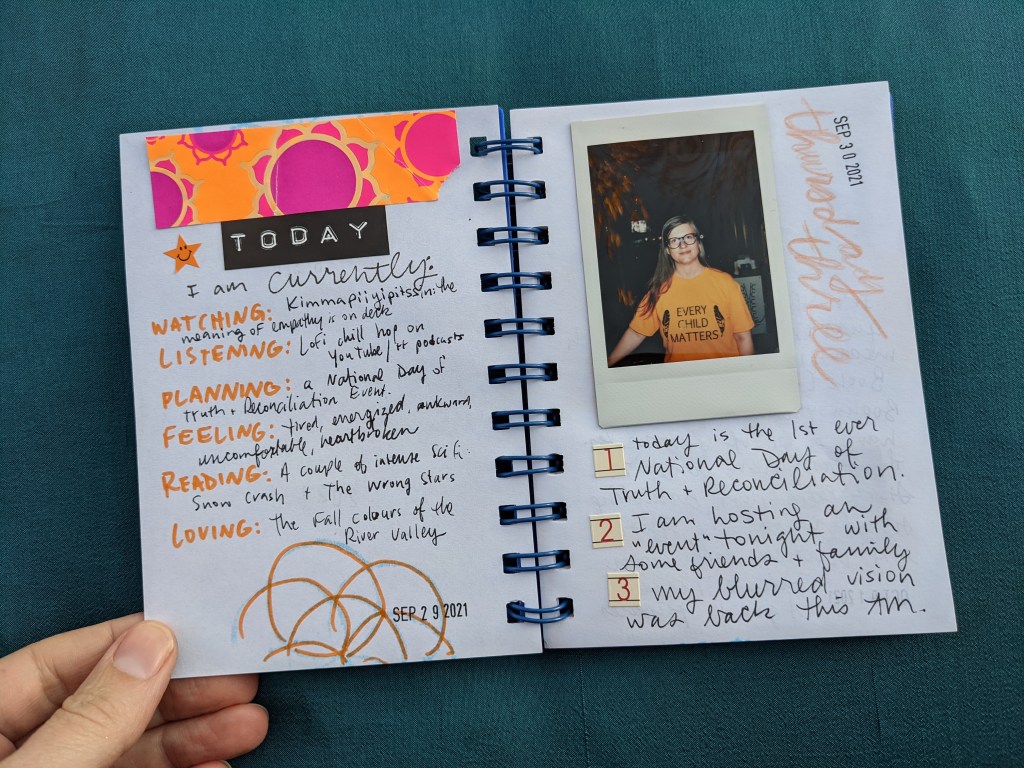 TODAY
I am currently:
WATCHING: Kimmapiiyipitssini: the
meaning of empathy is on deck
LISTENING: Lofi chill hop on
YouTube/ + podcasts
PLANNING: a National Day of
Truth + Reconciliation Event.
FEELING: tired, energized, awkward,
uncomfortable, heartbroken
READING: A couple of intense Sci fi:
Snow Crash + The Wrong Stars
LOVING: the Fall colours of the
River Valley
SEP 29 2021
SEP 30 2021
thursday three
EVERY
CHILD
MATTERS
1 today is the 1st ever
National Day of
Truth + Reconciliation.
2 I am hosting an
"event" tonight with
some friends + family
3 my blurred vision
was back this AM.